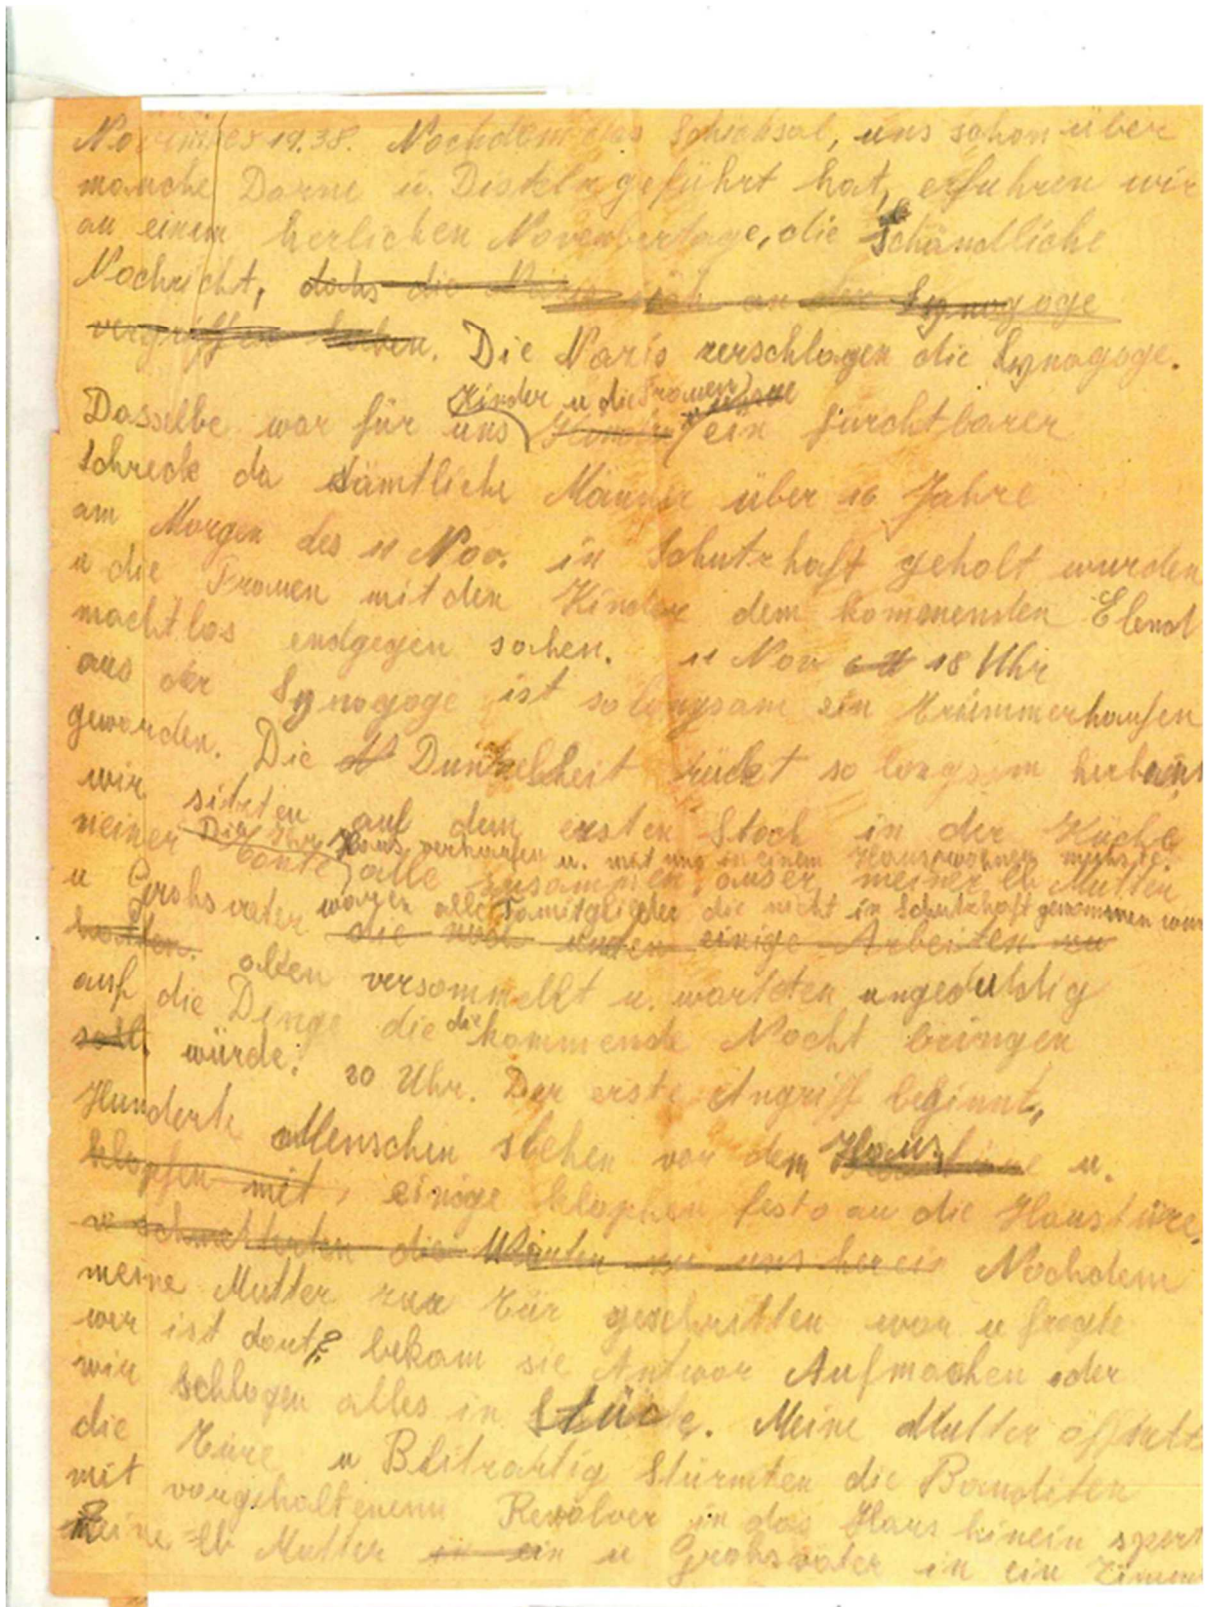 November 1938. Nachdem das Schicksal, uns schon über
manche Dorne u. Disteln geführt hat, erfuhren wir
an einem herlichen Novembertage, die schändliche
Nachricht, dahs die Nazis sich an der Synagoge
vergriffen haben. Die Nazis zerschlagen die Synagoge.
Kinder u die Frauen
Dasselbe war für uns Kinder ein furchtbarer
Schreck da sämtliche Männer über 16 Jahre
am Morgen des 11 Nov. in Schutzhaft geholt wurden
u die Frauen mit den Kinder dem kommenden Elend
machtlos endgegen sahen. 11 Nov 18 Uhr
aus der Synagoge ist so langsam ein Trümmerhaufen
geworden. Die Dunkelheit rückt so langsam herbei
wir sitzten auf dem ersten Stock in der Küche
Haus verkaufen u. mit uns in einem Haus wohnen muhste.
meiner Tante alle zusammen, auser meiner lb Mutter
waren alle Familglieder die nicht in Schutzhaft genommen
u Grohsvater die noch unden einige Arbeiten zu
hatten. oben versammelt u. warteten ungeduldig
auf die Dinge die die kommende Nacht bringen
soll. würde. 20 Uhr. Der erste Angriff beginnt,
Hunderte Menschen stehen vor dem Haus u.
klopfen mit, einige klopfen fest an die Haustüre,
u schmetterten die zu uns herein Nachdem
meine Mutter zur Tür geschritten war u fragte
wer ist dort? bekam sie Antwor Aufmachen oder
wir schlagen alles in Stücke. Meine Mutter öffnete
die Türe u Blitzartig stürmten die Banditen
mit vorgehaltenem Revolver in das Haus hinein spert
meine lb Mutter in ein u Grohsvater in ein